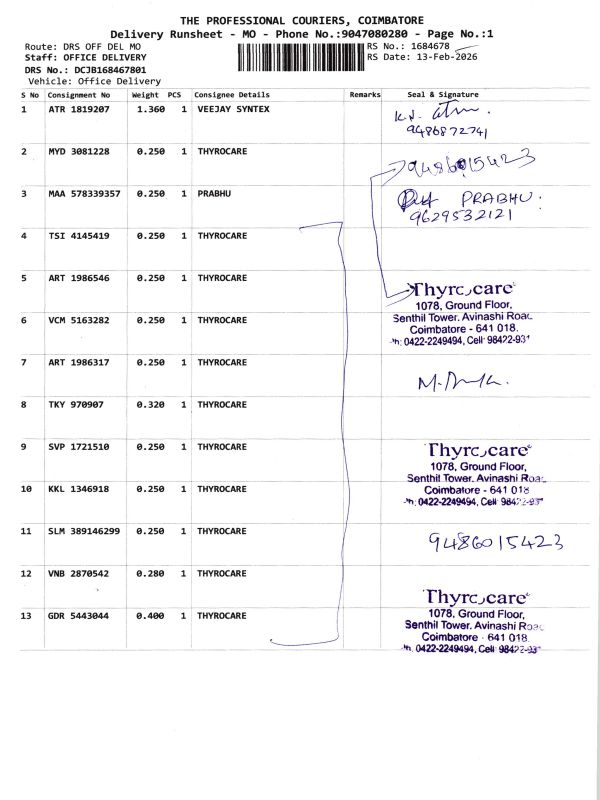 THE PROFESSIONAL COURIERS, COIMBATORE
Delivery Runsheet - MO - Phone No.:9047080280 - Page No.:1
Route: DRS OFF DEL MO RS No.: 1684678
Staff: OFFICE DELIVERY RS Date: 13-Feb-2026
DRS No.: DCJB168467801
Vehicle: Office Delivery
S No Consignment No Weight PCS Consignee Details Remarks Seal & Signature
1 ATR 1819207 1.360 1 VEEJAY SYNTEX
9486872741
2 MYD 3081228 0.250 1 THYROCARE 9486015423
3 MAA 578339357 0.250 1 PRABHU PRABHU
9629532121
4 TSI 4145419 0.250 1 THYROCARE
5 ART 1986546 0.250 1 THYROCARE
Thyrocare
1078, Ground Floor,
6 VCM 5163282 0.250 1 THYROCARE Senthil Tower. Avinashi Road
Coimbatore - 641 018.
Ph: 0422-2249494, Cell: 98422-931
7 ART 1986317 0.250 1 THYROCARE
8 TKY 970907 0.320 1 THYROCARE
9 SVP 1721510 0.250 1 THYROCARE Thyrocare
1078, Ground Floor,
Senthil Tower. Avinashi Road
10 KKL 1346918 0.250 1 THYROCARE Coimbatore - 641 018
Ph: 0422-2249494, Cell
11 SLM 389146299 0.250 1 THYROCARE 9486015423
12 VNB 2870542 0.280 1 THYROCARE
Thyrocare
13 GDR 5443044 0.400 1 THYROCARE 1078, Ground Floor,
Senthil Tower. Avinashi Road
Coimbatore - 641 018.
Ph. 0422-2249494, Cell